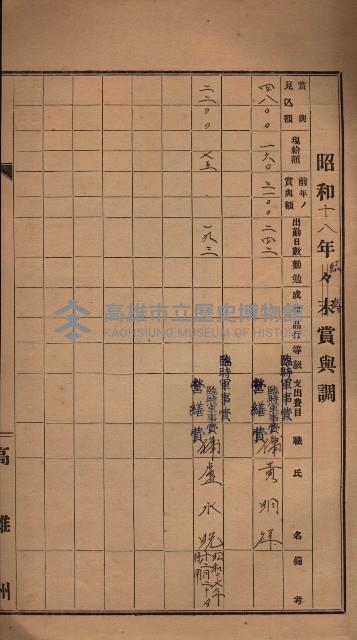 昭和十八年々末賞與調
臨時
賞與見込額
現給額
前年ノ賞與額
出勤日數
勤勉
成績
品行
等級
支出費目
職
氏名
備考
四八〇〇
一六〇
三一〇〇
二四二
臨時軍事費
臨時軍事費
營繕費
黃明祥
二二〇〇
七五
一九三
臨時軍事費
臨時軍事費
營繕費
盧水
昭和十七年十二月二十日
高雄州
高雄市立歷史博物館
KAOHSIUNG MUSEUM OF HISTORY